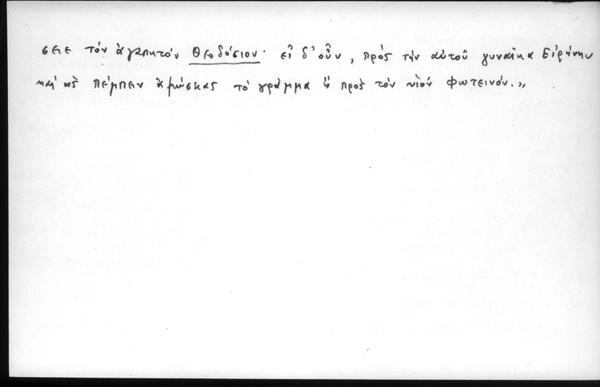 σειε τόν ἀγαπητόν Θεοδόσιον· εἰ δ' οὖν, πρός τήν αὐτοῦ γυναῖκα Εἰρήνην
καί ὡς πέμπειν τό γράμμα ἤ πρός τόν υἱόν Φωτεινόν.»